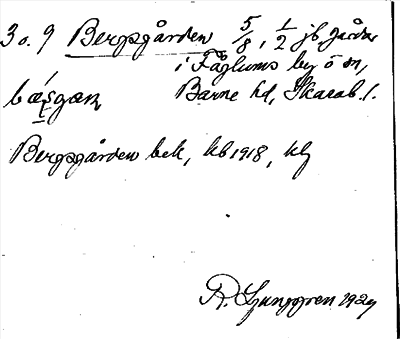 3 o. 9 Bergsgården 5/8, 1/2 jb gårdar
i Fåglums by o sn,
bæʂgaɳ Barne hd, Skarab. l.
Bergsgården bek, kb 1918, kly
R. Ljunggren 1929